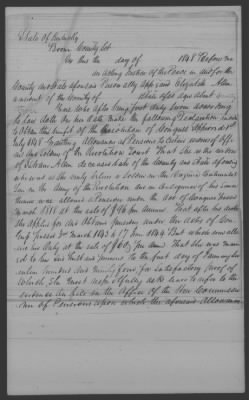 State of Kentucky
Boone County Sct
On this the day of 1848 Before me
an acting Justice of the Peace in and for the
County and State aforesaid Personally appeared Elizabeth Allen
a resident of the County of State aforesaid aged about
Years Who after being first duly Sworn according
to law doth on her oath make the following Declaration in order
to Obtain the benefit of the Resolution of Congress Approved 1st
July 1848 Granting Allowance of Pensions to Certain widows of Offi-
cers and Soldiers of the Revolution
That She is the widow
of Allen deceased late of the County and State aforesaid
who was as she verily believes a Soldier in the Virginia Continental
Line in the Army of the Revolution and in consequence of his Serv-
ices was allowed a Pension under the act of Congress passed
March 1818 at the rate of $96 per annum That after his death
She applied for and obtained pension under the acts of Con-
gress passed 3rd March 1843 & 17 June 1844 But which were allow-
ed her Only at the rate of per annum That She was marri-
ed to her said Husband previous to the first day of January Sev-
enteen hundred and Ninety four for Satisfactory proof of
Which She most respectfully asks leave to refer to the
evidence On file in the Office of the Commissio-
ner of Pensions upon which the aforesaid Allowance